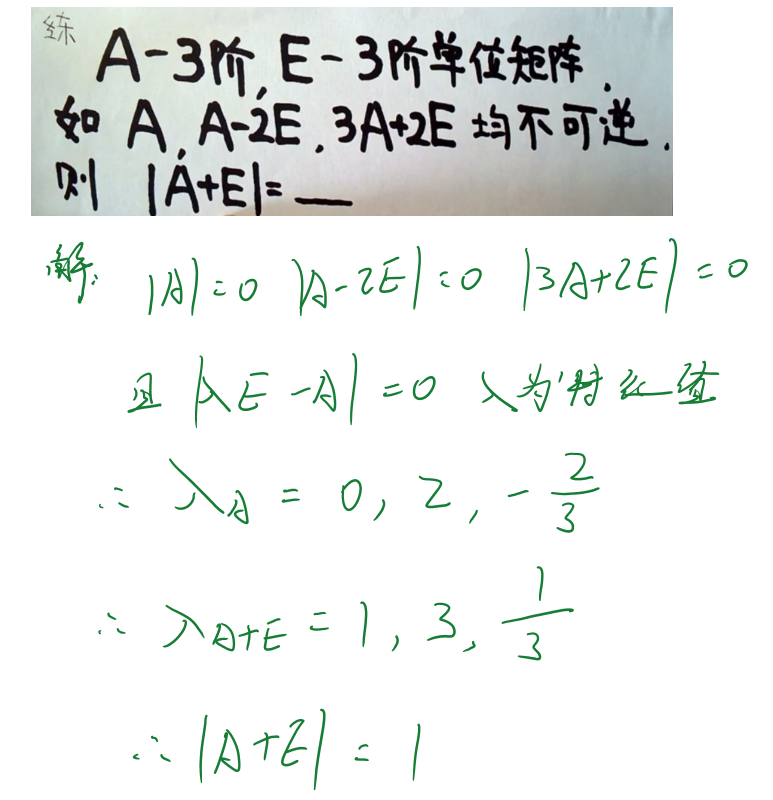 练
A-3阶, E-3阶单位矩阵.
如 A, A-2E, 3A+2E 均不可逆.
则 |A+E|=__
解: |A|=0 |A-2E|=0 |3A+2E|=0
且 |λE-A|=0 λ为特征值
∴ λ_A = 0, 2, -2/3
∴ λ_{A+E} = 1, 3, 1/3
∴ |A+E| = 1